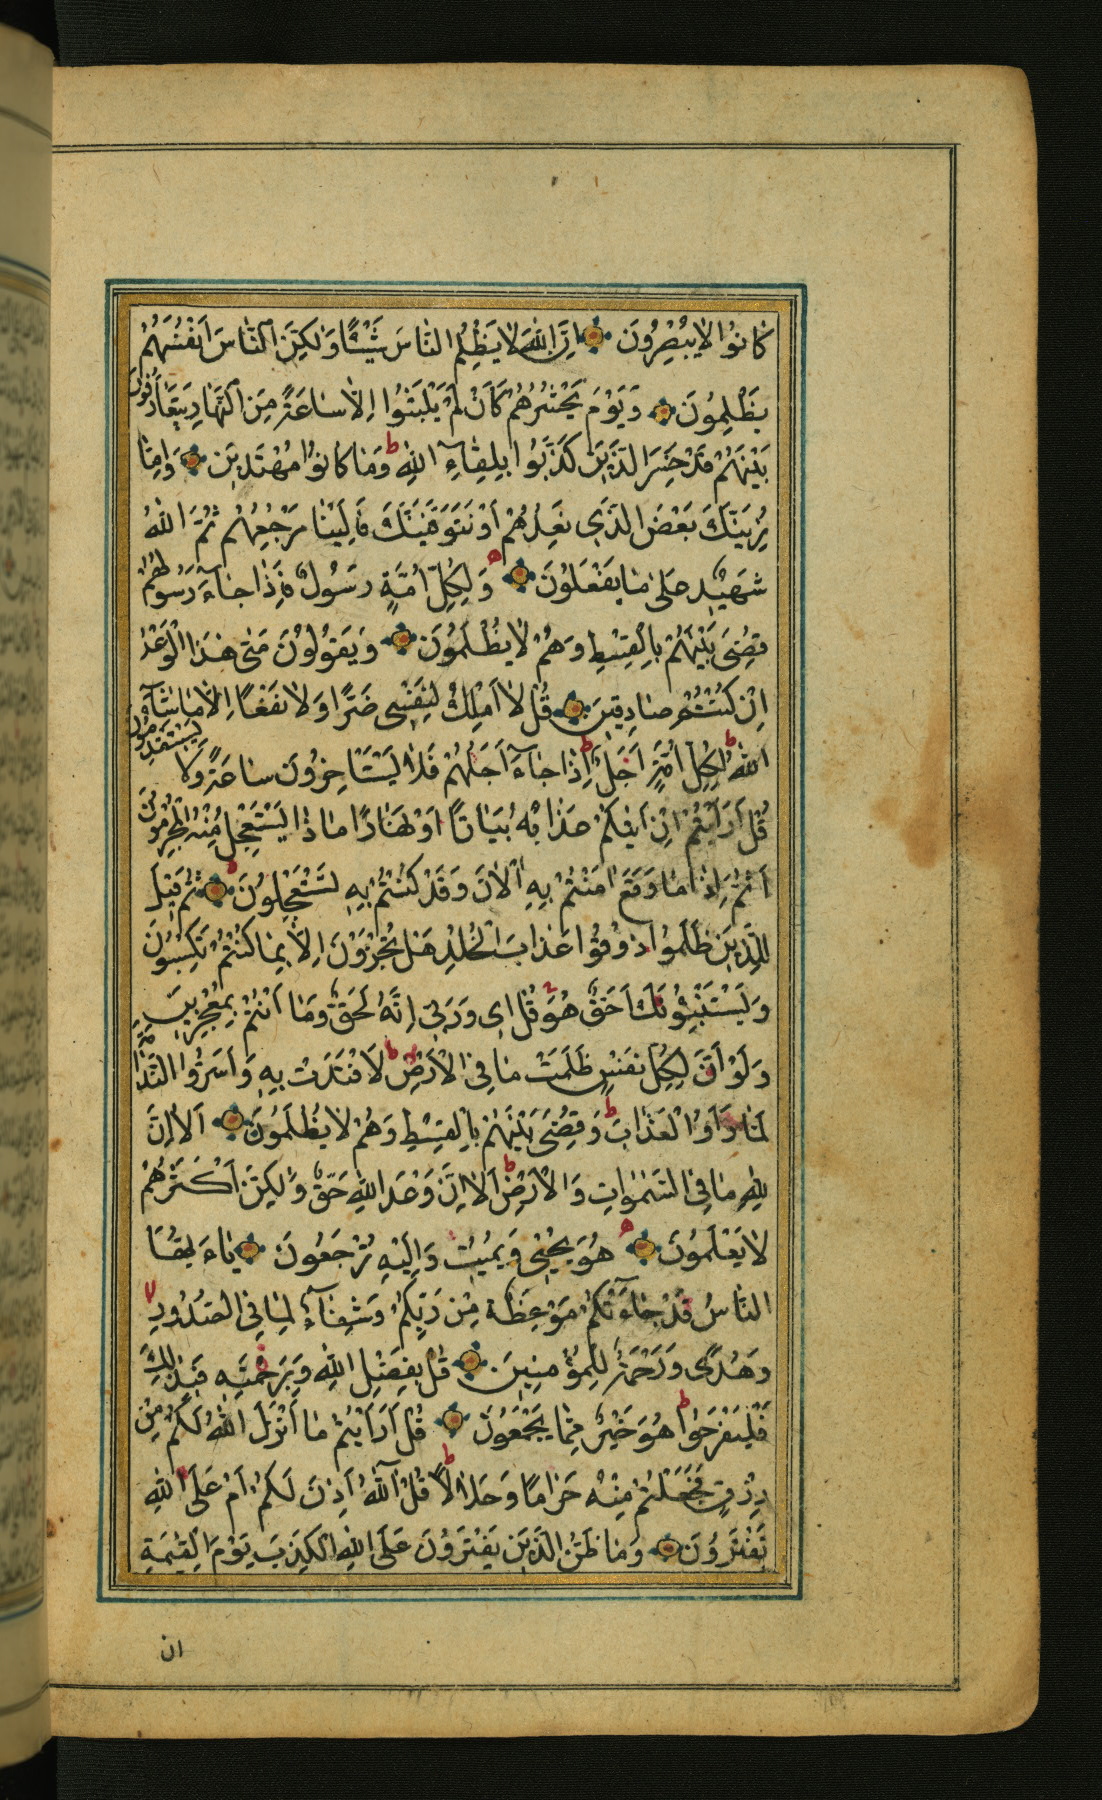 كانوا لا يبصرون ۞ اِنَّ اللهَ لا يَظْلِمُ الناسَ شَيْئًا وَلٰكِنَّ النّاسَ اَنْفُسَهُمْ
يَظْلِمُونَ ۞ وَيَوْمَ يَحْشُرُهُمْ كَاَنْ لَمْ يَلْبَثُوا اِلّا ساعَةً مِنَ النَّهارِ يَتَعارَفُونَ
بَيْنَهُمْ قَدْ خَسِرَ الَّذينَ كَذَّبُوا بِلِقاءِ اللهِ ط وَما كانُوا مُهْتَدينَ ۞ وَاِمّا
نُرِيَنَّكَ بَعْضَ الَّذي نَعِدُهُمْ اَوْ نَتَوَفَّيَنَّكَ فَاِلَيْنا مَرْجِعُهُمْ ثُمَّ اللهُ
شَهيدٌ عَلى ما يَفْعَلُونَ ۞ وَلِكُلِّ اُمَّةٍ رَسُولٌ فَاِذا جاءَ رَسُولُهُمْ
قُضِيَ بَيْنَهُمْ بِالْقِسْطِ وَهُمْ لا يُظْلَمُونَ ۞ وَيَقُولُونَ مَتى هٰذَا الْوَعْدُ
اِنْ كُنْتُمْ صادِقينَ ۞ قُلْ لا اَمْلِكُ لِنَفْسي ضَرًّا وَلا نَفْعًا اِلّا ما شاءَ
اللهُ ط لِكُلِّ اُمَّةٍ اَجَلٌ ط اِذا جاءَ اَجَلُهُمْ فَلا يَسْتَاْخِرُونَ ساعَةً وَلا يَسْتَقْدِمُونَ
قُلْ اَرَاَيْتُمْ اِنْ اَتٰيكُمْ عَذابُهُ بَياتًا اَوْ نَهارًا ماذا يَسْتَعْجِلُ مِنْهُ الْمُجْرِمُونَ
اَثُمَّ اِذا ما وَقَعَ اٰمَنْتُمْ بِهِ آلْاٰنَ وَقَدْ كُنْتُمْ بِهِ تَسْتَعْجِلُونَ ۞ ثُمَّ قيلَ
لِلَّذينَ ظَلَمُوا ذُوقُوا عَذابَ الْخُلْدِ هَلْ تُجْزَوْنَ اِلّا بِما كُنْتُمْ تَكْسِبُونَ
وَيَسْتَنْبِئُونَكَ اَحَقٌّ هُوَ قُلْ اي وَرَبّي اِنَّهُ لَحَقٌّ وَما اَنْتُمْ بِمُعْجِزينَ
وَلَوْ اَنَّ لِكُلِّ نَفْسٍ ظَلَمَتْ ما فِي الْاَرْضِ لَافْتَدَتْ بِهِ ط وَاَسَرُّوا النَّدامَةَ
لَمّا رَاَوُا الْعَذابَ ط وَقُضِيَ بَيْنَهُمْ بِالْقِسْطِ وَهُمْ لا يُظْلَمُونَ ۞ اَلا اِنَّ
لِلّٰهِ ما فِي السَّمٰواتِ وَالْاَرْضِ ط اَلا اِنَّ وَعْدَ اللهِ حَقٌّ وَلٰكِنَّ اَكْثَرَهُمْ
لا يَعْلَمُونَ ۞ هُوَ يُحْيي وَيُميتُ وَاِلَيْهِ تُرْجَعُونَ ۞ يا اَيُّهَا
النّاسُ قَدْ جاءَتْكُمْ مَوْعِظَةٌ مِنْ رَبِّكُمْ وَشِفاءٌ لِما فِي الصُّدُورِ
وَهُدًى وَرَحْمَةٌ لِلْمُؤْمِنينَ ۞ قُلْ بِفَضْلِ اللهِ وَبِرَحْمَتِهِ فَبِذٰلِكَ
فَلْيَفْرَحُوا ط هُوَ خَيْرٌ مِمّا يَجْمَعُونَ ۞ قُلْ اَرَاَيْتُمْ ما اَنْزَلَ اللهُ لَكُمْ مِنْ
رِزْقٍ فَجَعَلْتُمْ مِنْهُ حَرامًا وَحَلالًا ط قُلْ آللهُ اَذِنَ لَكُمْ اَمْ عَلَى اللهِ
تَفْتَرُونَ ۞ وَما ظَنُّ الَّذينَ يَفْتَرُونَ عَلَى اللهِ الْكَذِبَ يَوْمَ الْقِيٰمَةِ
ان